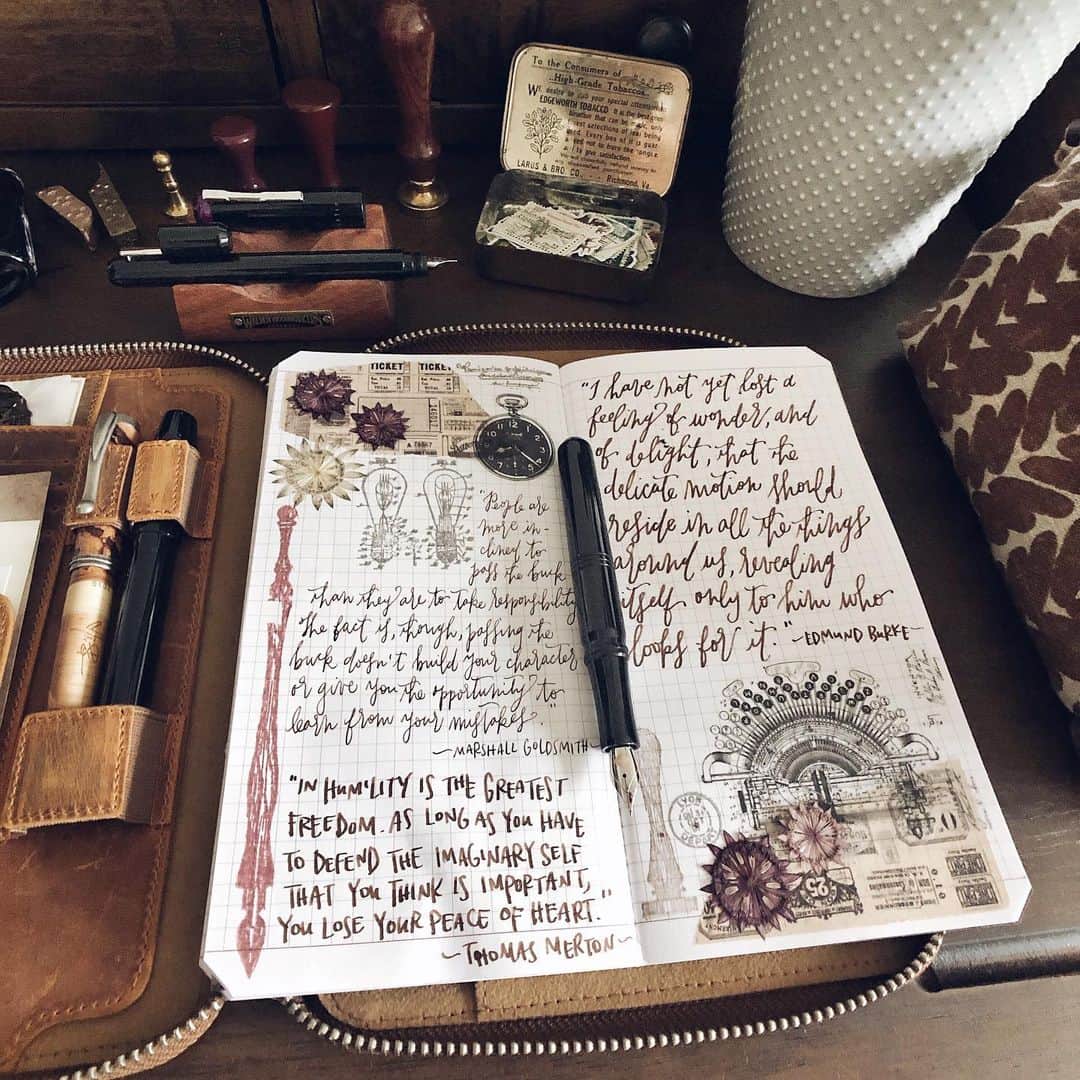 To the Consumers of
High-Grade Tobaccos
EDGEWORTH TOBACCO
LARUS & BRO CO. Richmond, Va.
TICKET TICKET
"People are
more in-
clined to
pass the buck
than they are to take responsibility
The fact is, though, passing the
buck doesn't build your character
or give you the opportunity to
learn from your mistakes."
~MARSHALL GOLDSMITH~
"IN HUMILITY IS THE GREATEST
FREEDOM. AS LONG AS YOU HAVE
TO DEFEND THE IMAGINARY SELF
THAT YOU THINK IS IMPORTANT,
YOU LOSE YOUR PEACE OF HEART."
~THOMAS MERTON~
"I have not yet lost a
feeling of wonder, and
of delight, that the
delicate motion should
reside in all the things
around us, revealing
itself only to him who
looks for it." ~EDMUND BURKE~
LYON
25